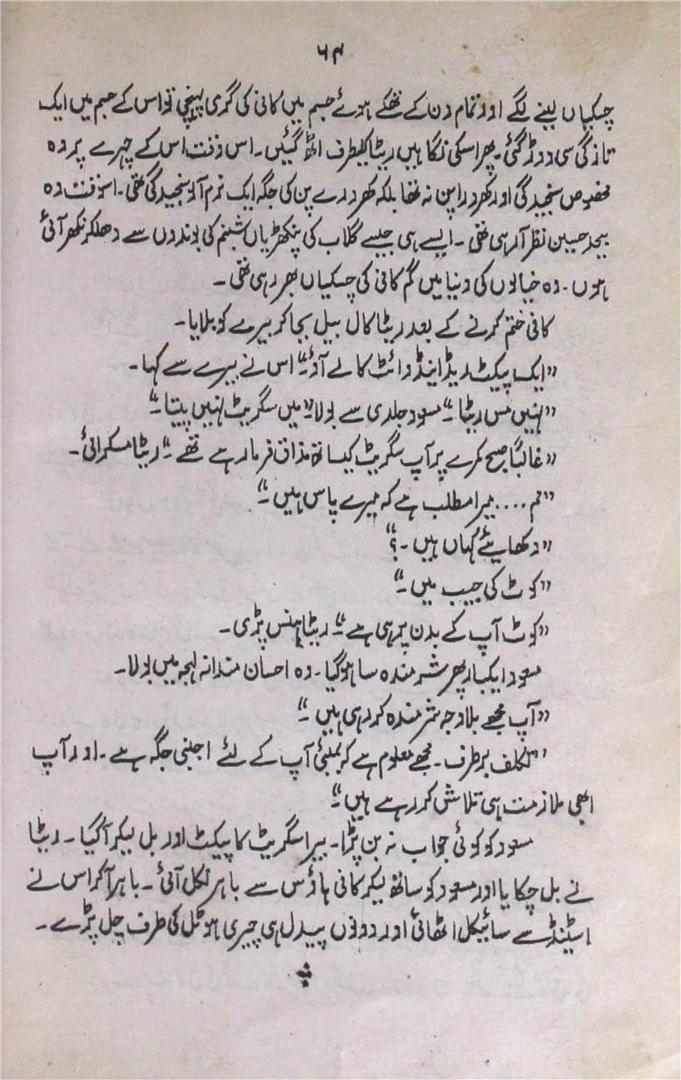 ۶۴
چسکیاں لینے لگے اور تمام دن کے تھکے ہوئے جسم میں کافی کی گرمی پہنچی تو اس کے جسم میں ایک
تازگی سی دوڑ گئی۔ پھر اسکی نگاہیں ریٹا کیطرف اٹھ گئیں۔ اس وقت اس کے چہرے پر وہ
مخصوص سنجیدگی اور کھردراپن نہ تھا بلکہ کھردرے پن کی جگہ ایک نرم آلود سنجیدگی تھی۔ اسوقت وہ
بیحد حسین نظر آرہی تھی۔ ایسے ہی جیسے گلاب کی پنکھڑیاں شبنم کی بوندوں سے دھلکر نکھر آئی
ہوں۔ وہ خیالوں کی دنیا میں گم کافی کی چسکیاں بھر رہی تھی۔
کافی ختم کرنے کے بعد ریٹا کال بیل بجا کر بیرے کو بلایا۔
”ایک پیکٹ ریڈ اینڈ وائٹ کالے آؤ“ اس نے بیرے سے کہا۔
”نہیں مس ریٹا۔“ مسعود جلدی سے بولا ”میں سگریٹ نہیں پیتا۔“
”غالباً صبح کمرے پر آپ سگریٹ کیساتھ مذاق فرمارہے تھے۔“ ریٹا مسکرائی۔
”م.... میرا مطلب ہے کہ میرے پاس ہیں۔“
”دکھایئے کہاں ہیں۔؟“
”کوٹ کی جیب میں۔“
”کوٹ آپ کے بدن پر ہی ہے۔“ ریٹا ہنس پڑی۔
مسعود ایکبار پھر شرمندہ سا ہوگیا۔ وہ احسان مندانہ لہجہ میں بولا۔
”آپ مجھے بلاوجہ شرمندہ کر رہی ہیں۔“
”تکلف برطرف۔ مجھے معلوم ہے کہ بمبئی آپ کے لئے اجنبی جگہ ہے۔ اور آپ
ابھی ملازمت ہی تلاش کر رہے ہیں۔“
مسعود کو کوئی جواب نہ بن پڑا۔ بیرا سگریٹ کا پیکٹ اور بل لیکر آگیا۔ ریٹا
نے بل چکایا اور مسعود کو ساتھ لیکر کافی ہاؤس سے باہر نکل آئی۔ باہر آکر اس نے
اسٹینڈ سے سائیکل اٹھائی اور دونوں پیدل ہی چیری ہوٹل کی طرف چل پڑے۔